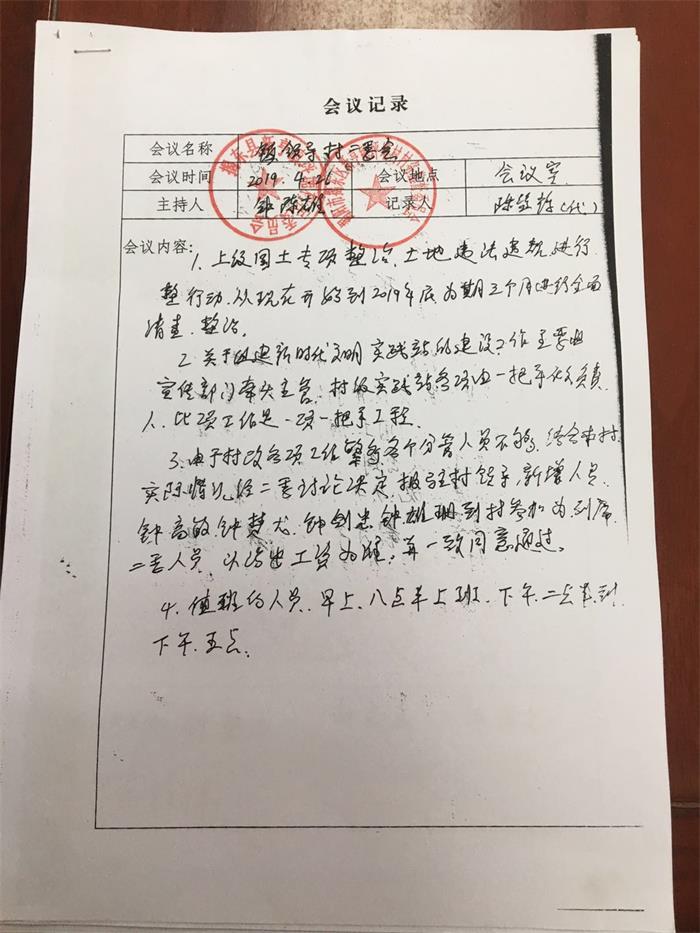 会议记录
会议名称 镇领导村二委会
会议时间 2019.4.26 会议地点 会议室
主持人 记录人 (代)
会议内容:
1、上级国土专项整治、土地违法违规进行
整行动、从现在开始到2019年底为期三个月进行全面
清查、整治。
2、关于 建新时代文明实践站的建设工作主要由
宣传部门牵头主管、村级实践站各项由一把手做负责
人、此项工作是一项一把手工程。
3、由于村政各项工作繁多各个分管人员不够、结合本村
实际情况经二委讨论决定、报驻村领导、新增人员
钟高敏 到村参加为列席
二委人员、 工资为准、 一致同意通过。
4、值班的人员、早上、八点半上班、下午、二点半到
下午、五点、